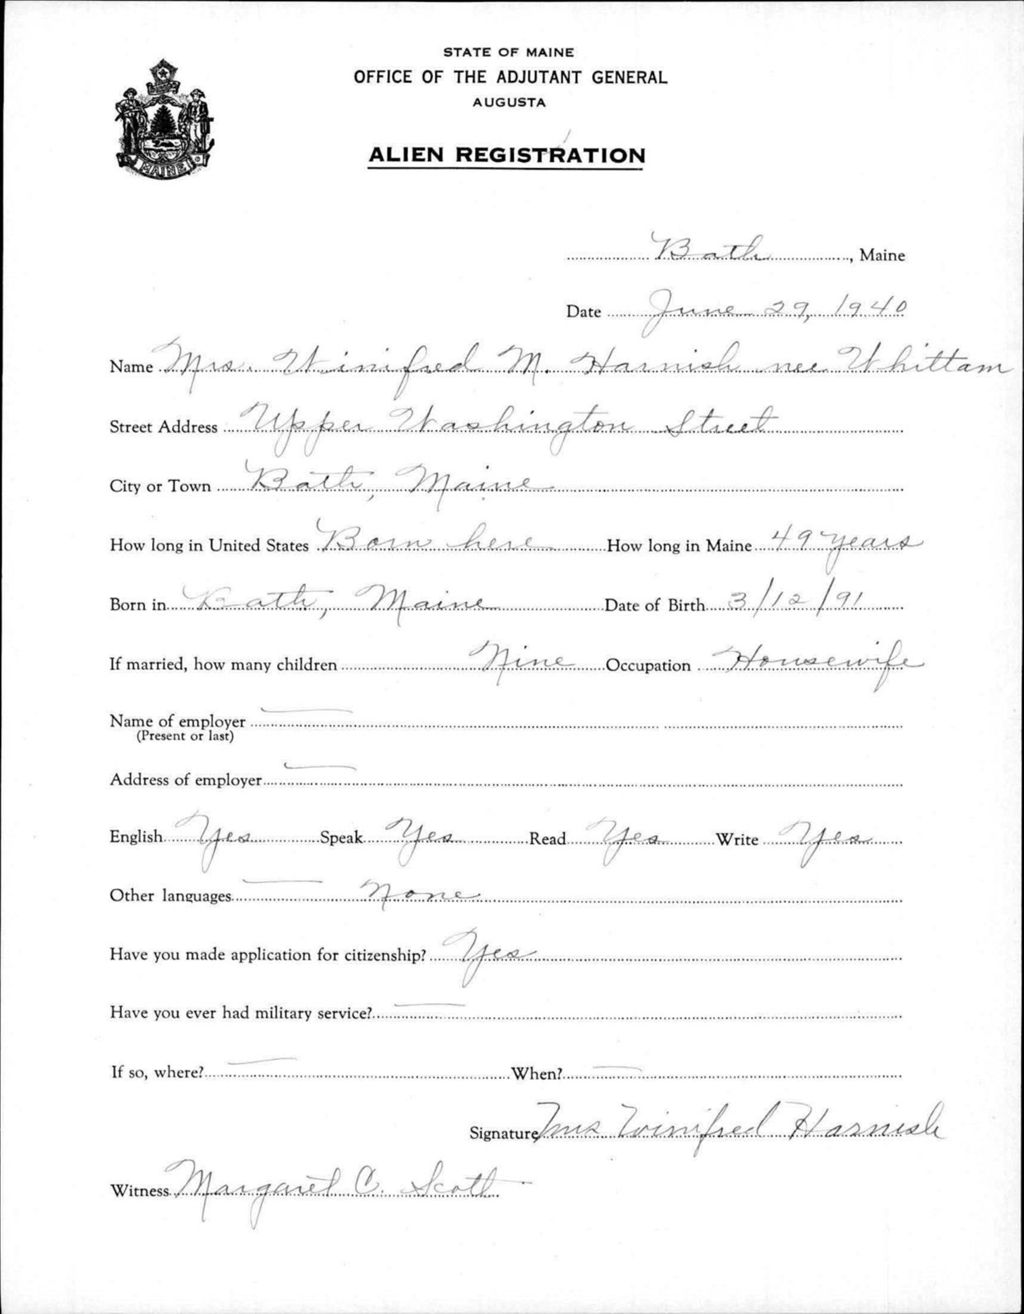 STATE OF MAINE
OFFICE OF THE ADJUTANT GENERAL
AUGUSTA
ALIEN REGISTRATION
MAINE
Bath, Maine
Date June 29, 1940
Name Mrs. Winifred M. Harnish nee Whittam
Street Address Upper Washington Street
City or Town Bath, Maine
How long in United States Born here How long in Maine 49 years
Born in Bath, Maine Date of Birth 3/12/91
If married, how many children Nine Occupation Housewife
Name of employer —
(Present or last)
Address of employer —
English Yes Speak Yes Read Yes Write Yes
Other languages — None
Have you made application for citizenship? Yes
Have you ever had military service? —
If so, where? — When? —
Signature Mrs Winifred Harnish
Witness Margaret C. Scott